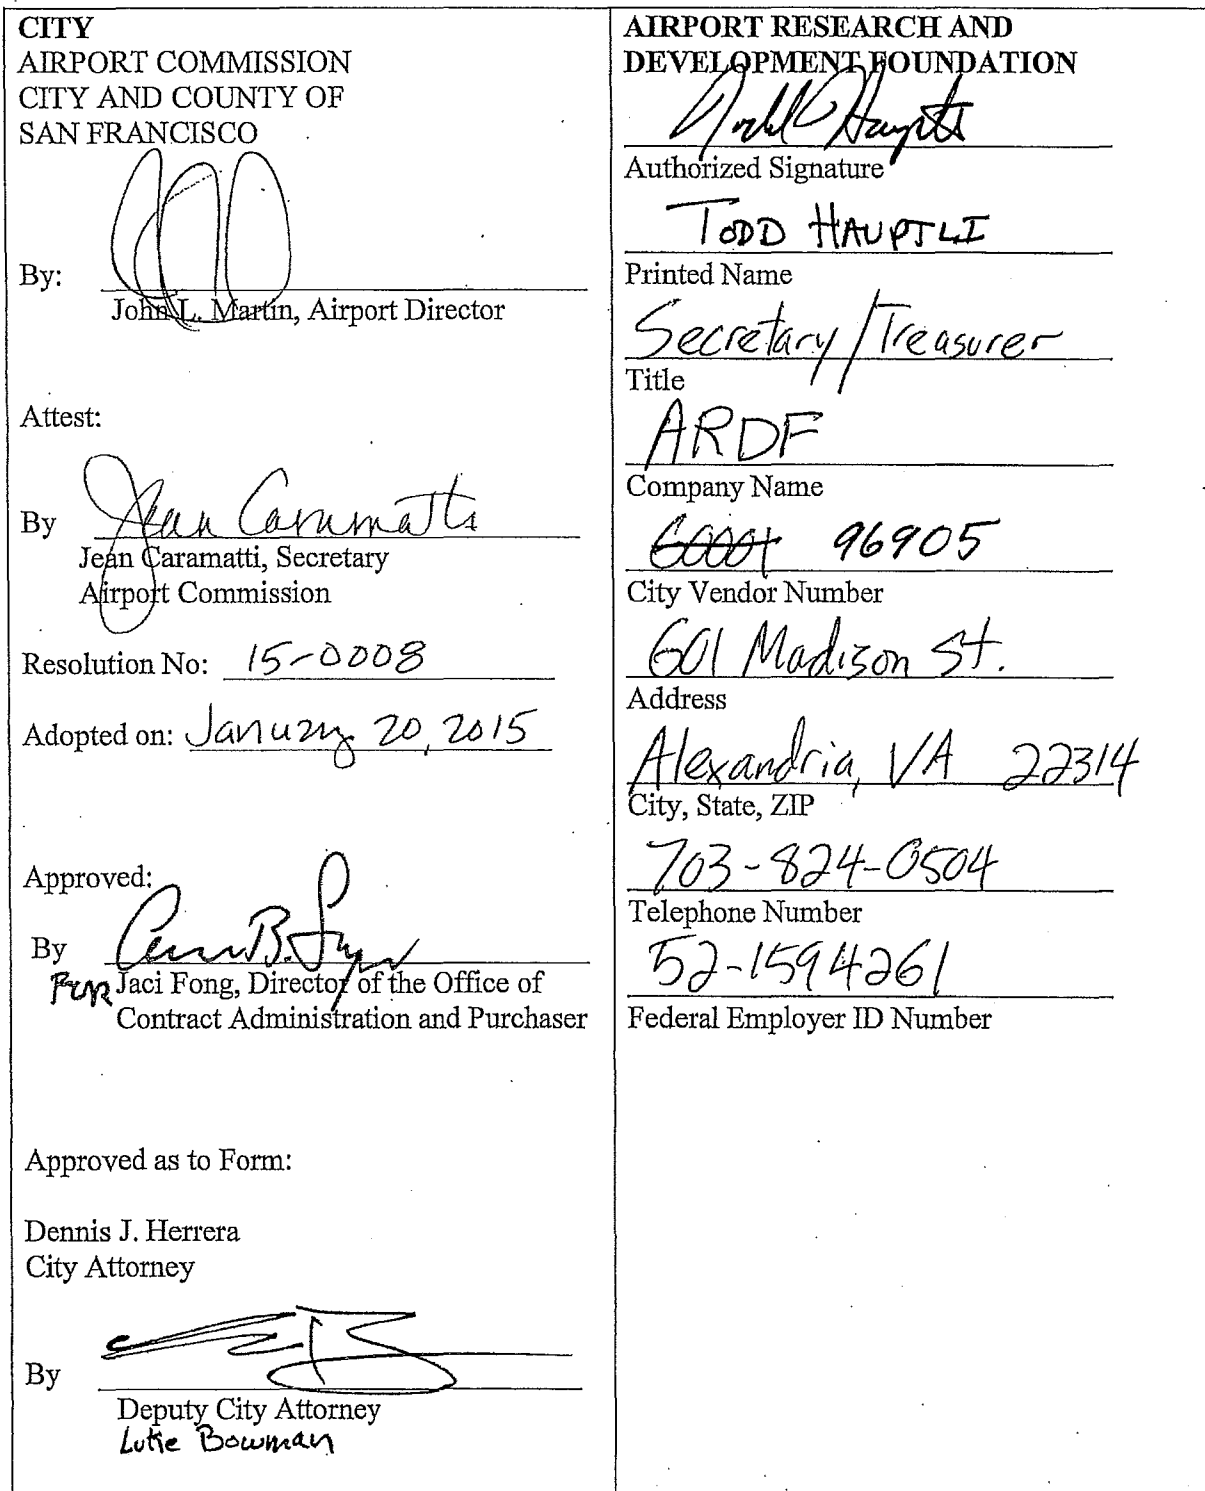 CITY
AIRPORT COMMISSION
CITY AND COUNTY OF
SAN FRANCISCO
By:
John L. Martin, Airport Director
Attest:
By Jean Caramatti
Jean Caramatti, Secretary
Airport Commission
Resolution No: 15-0008
Adopted on: January 20, 2015
Approved:
By
For Jaci Fong, Director of the Office of
Contract Administration and Purchaser
Approved as to Form:
Dennis J. Herrera
City Attorney
By
Deputy City Attorney
Luke Bowman
AIRPORT RESEARCH AND
DEVELOPMENT FOUNDATION
Todd Hauptli
Authorized Signature
TODD HAUPTLI
Printed Name
Secretary/Treasurer
Title
ARDF
Company Name
96905
City Vendor Number
601 Madison St.
Address
Alexandria, VA 22314
City, State, ZIP
703-824-0504
Telephone Number
52-1594261
Federal Employer ID Number